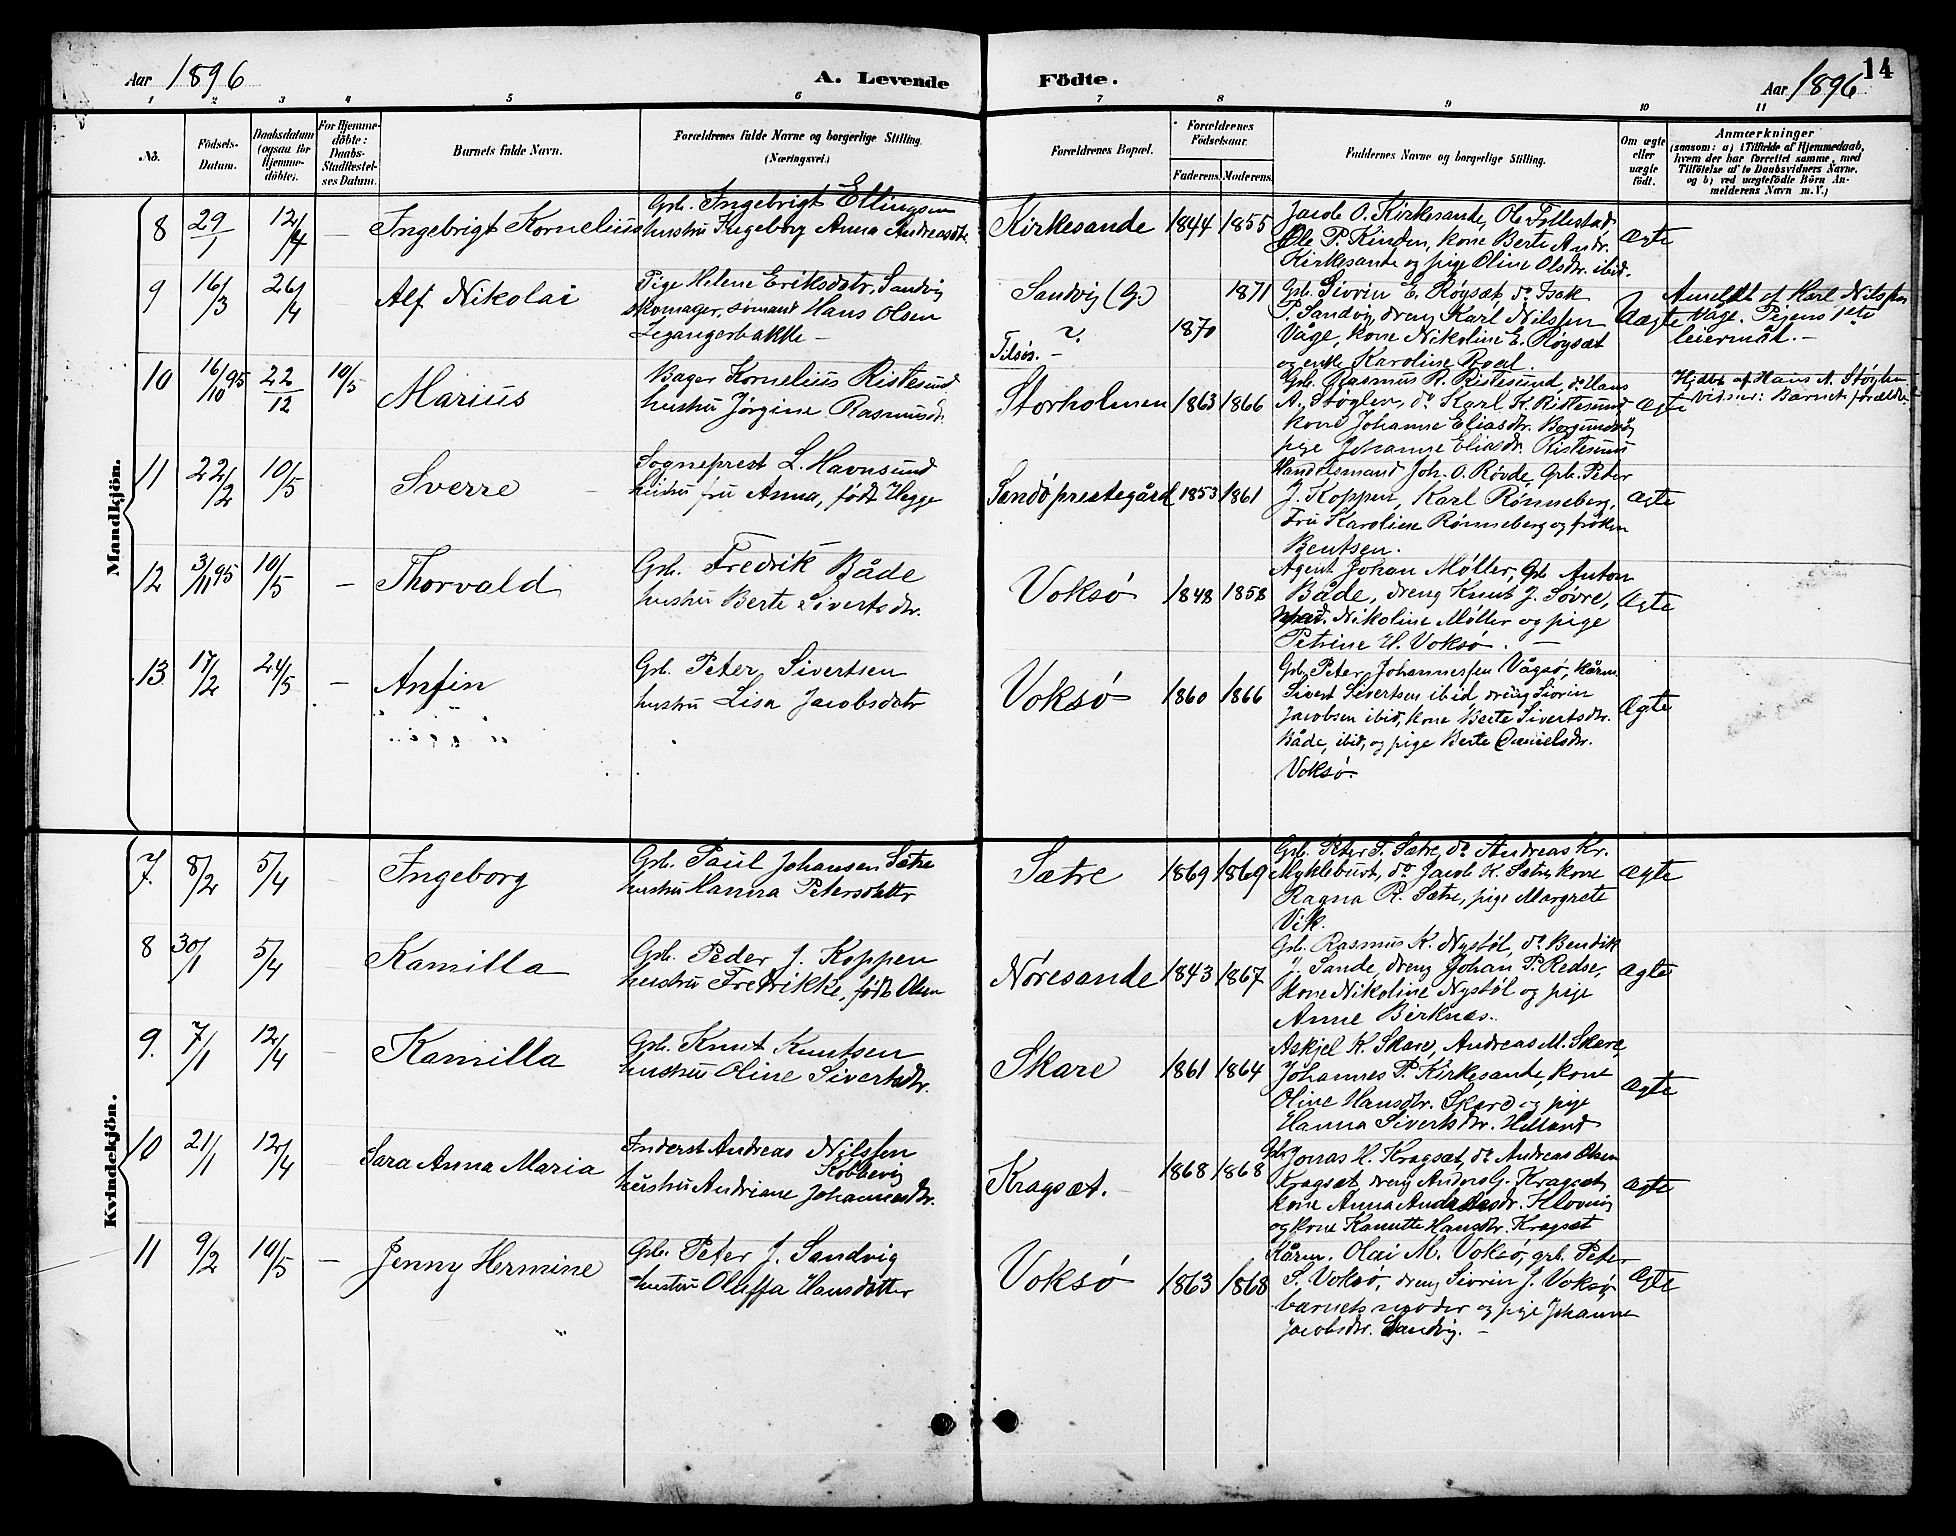 Aar 1896
A. Levende
Födte.
Aar 1896
14
1 2 3 4 5 6 7 8 9 10 11
No.
Födsels-
Datum.
Daabsdatum
(ogsaa for
Hjemme-
döbte).
For Hjemme-
döbte:
Daabs-
Stadfæstel-
ses Datum.
Barnets fulde Navn.
Forældrenes fulde Navne og borgerlige Stilling.
(Næringsvei.)
Forældrenes Bopæl.
Forældrenes
Födselsaar.
Faderens
Moderens
Faddernes Navne og borgerlige Stilling.
Om ægte
eller
uægte
födt.
Anmærkninger
(saasom: a) i Tilfælde af Hjemmedaab,
hvem der har forrettet samme, med
Tilföielse af to Daabsvidners Navne.
og b) ved uægtefödte Börn An-
melderens Navn m. V.)
Mandkjön.
8 29/1 12/4 — Ingebrigt Kornelius
Grb. Ingebrigt Ellingsen
hustru Ingeborg Anna Andreasdtr.
Kirkesande 1844 1855
Jacob O. Kirkesande, Ole Tollestad,
Ole P. Kinden, kone Berte Andr.
Kirkesande og pige Oline Olsdtr. ibid.
Ægte
9 16/3 26/4 — Alf Nikolai
Pige Helene Eriksdatr. Sandvig
skomager, sømand Hans Olsen
Legangerbakke —
Sandvig (G.) 1871
1870
Grb. Sivrin E. Røysæt, do Isak
P. Sandvig, dreng Karl Nilssen
Våge, kone Nikoline E. Røysæt
og enke Karoline
Uægte
Anmeldt af Karl Nilssen
Våge. Pigens 1ste
leiermål. —
10 16/10 95 22/12 10/5 Marius
Bager Kornelius Ristesund
hustru Jørgine Rasmusdr.
Storholmen 1863 1866
Grb. Rasmus R. Ristesund, do Hans
A. Støylen, do Karl K. Ristesund
kone Johanne Eliasdtr. Borgundvåg
pige Johanne Eliasdr. Ristesund
Ægte
Hjdbt. af Hans A. Støylen
Vidner: Barnets forældre
11 22/2 10/5 Sverre
Sogneprest L. Havnsund
hustru fru Anna, født Hegge
Sandöprestegård 1853 1861
Handelsmand Joh. O. Røvde, Grb. Peter
J. Koppen, Karl Rønneberg,
Fru Karoline Rønneberg og frøken
Bentsen.
Ægte
12 3/11 95 10/5 — Thorvald
Grb. Fredrik Både
hustru Berte Sivertsdtr.
Voksø 1848 1858
Agent Johan Møller, Grb Anton
Både, dreng Knut J. Søvre,
Nikoline Møller og pige
Petrine H. Voksø. —
Ægte
13 17/2 24/5 — Anfin
Grb. Peter Sivertsen
hustru Lisa Jacobsdatr
Voksø 1860 1866
Grb. Peter Johannessen Vågsø, kårm.
Sivert Sivertsen ibid, dreng Sivrin
Jacobsen ibid, kone Berte Sivertsdtr.
Både, ibid, og pige Berte Danielsdtr.
Voksø.
Ægte
Kvindekjön.
7. 8/2 5/4 Ingeborg
Grb. Paul Johansen Sætre
hustru Hanna Petersdatter
Sætre 1869 1869
Grb. Peter P. Sætre, do Andreas Kr.
Myklebust, do Jacob K. Sætre, kone
Ragna R. Sætre, pige Margrete
Vik.
Ægte
8 30/1 5/4 Kamilla
Grb. Peder J. Koppen
hustru Fredrikke, født Olsen
Nøresande 1843 1867
Grb. Rasmus K. Nystöl, do Bendik
J. Sande, dreng Johan P. Redse,
kone Nikoline Nystöl og pige
Anne Birknæs.
Ægte
9. 7/1 12/4 Kamilla
Grb. Knut Knutsen
hustru Oline Sivertsdtr.
Skare 1861 1864
Askjel K. Skare, Andreas M. Skare,
Johannes P. Kirkesande, kone
Oline Hansdtr. Skare og pige
Hanna Sivertsdtr. Helland
Ægte
10 21/1 12/4 — Sara Anna Maria
Inderst Andreas Nilssen
Kobbevig
hustru Andriane Johannesdtr.
Kragsæt. 1868 1868
Grb. Jonas H. Kragsæt, do Andreas Olsen
Kragsæt, dreng Anders G. Kragsæt,
kone Anna Andreasdr. Klovning
og kone Kanutte Hansdtr. Kragsæt
Ægte
11 9/2 10/5 — Jenny Hermine
Grb. Peter J. Sandvig
hustru Oleffa Hansdatter
Voksø 1863 1868
Kårm. Olai M. Voksø, grb. Peter
S. Voksø, dreng Sivrin J. Voksø,
barnets moder og pige Johanne
Jacobsdtr. Sandvig. —
Ægte